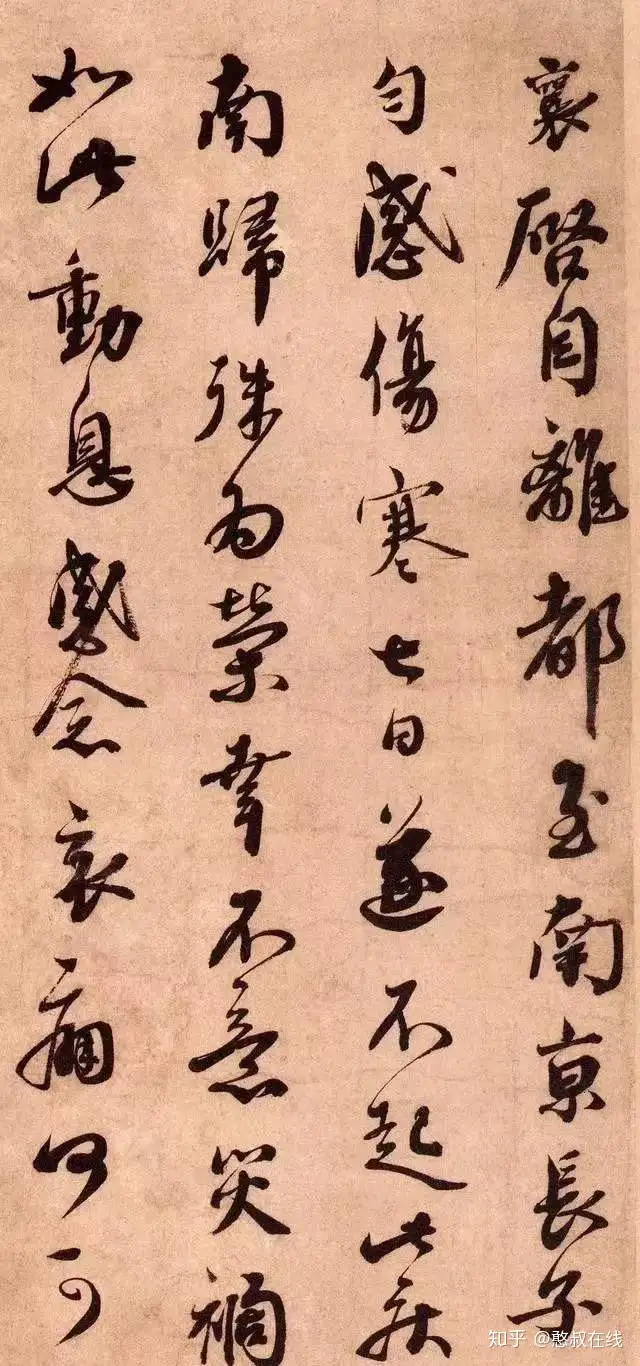 襄啓自離都至南京長子
匀感傷寒七日遂不起此疾
南歸殊為榮幸不意災禍
如此動息感念哀痛何可
知乎 @憨叔在线